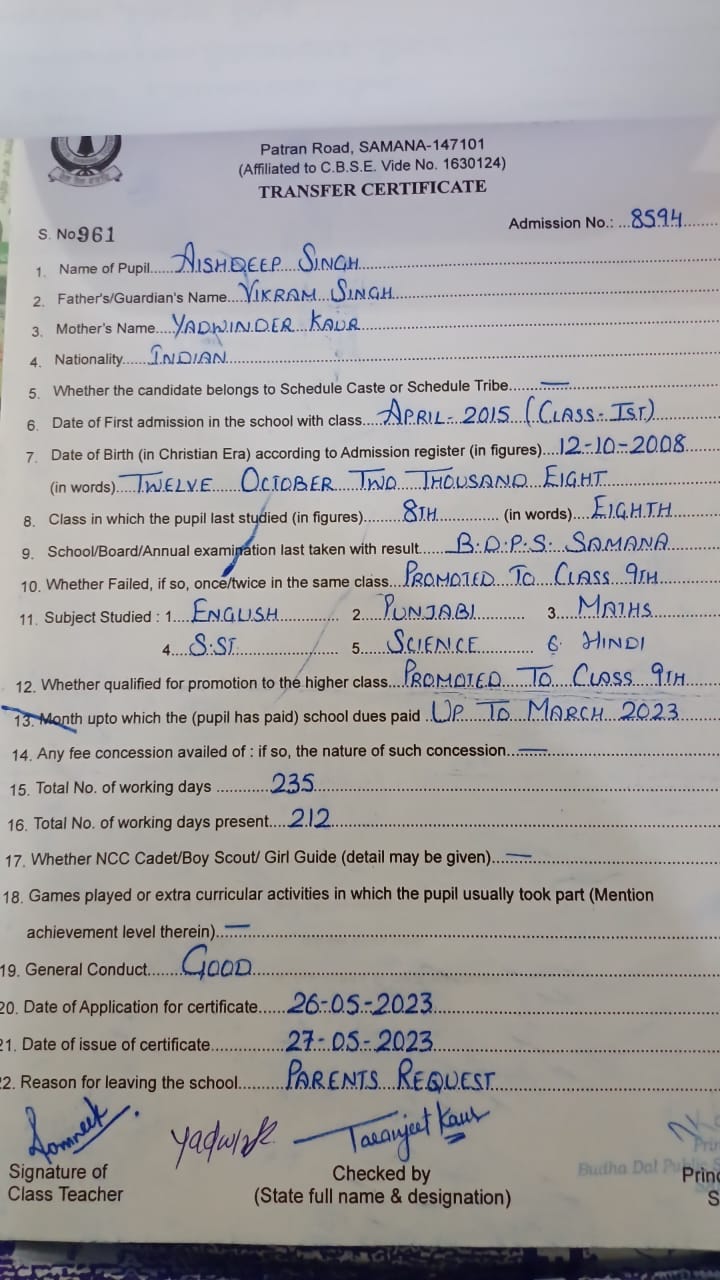 Patran Road, SAMANA-147101
(Affiliated to C.B.S.E. Vide No. 1630124)
TRANSFER CERTIFICATE
S. No 961 Admission No.: 8594
1. Name of Pupil AISHDEEP SINGH
2. Father's/Guardian's Name VIKRAM SINGH
3. Mother's Name YADWINDER KAUR
4. Nationality INDIAN
5. Whether the candidate belongs to Schedule Caste or Schedule Tribe —
6. Date of First admission in the school with class APRIL - 2015 (CLASS - IST)
7. Date of Birth (in Christian Era) according to Admission register (in figures) 12-10-2008
(in words) TWELVE OCTOBER TWO THOUSAND EIGHT
8. Class in which the pupil last studied (in figures) 8TH (in words) EIGHTH
9. School/Board/Annual examination last taken with result B.D.P.S. SAMANA
10. Whether Failed, if so, once/twice in the same class PROMOTED TO CLASS 9TH
11. Subject Studied : 1 ENGLISH 2. PUNJABI 3. MATHS
4. S.ST. 5. SCIENCE 6. HINDI
12. Whether qualified for promotion to the higher class PROMOTED TO CLASS 9TH
13. Month upto which the (pupil has paid) school dues paid UP TO MARCH 2023
14. Any fee concession availed of : if so, the nature of such concession —
15. Total No. of working days 235
16. Total No. of working days present 212
17. Whether NCC Cadet/Boy Scout/ Girl Guide (detail may be given) —
18. Games played or extra curricular activities in which the pupil usually took part (Mention
achievement level therein) —
19. General Conduct GOOD
20. Date of Application for certificate 26-05-2023
21. Date of issue of certificate 27-05-2023
22. Reason for leaving the school PARENTS REQUEST
Taranjeet Kaur
Signature of Checked by Budha Dal Princ
Class Teacher (State full name & designation) S